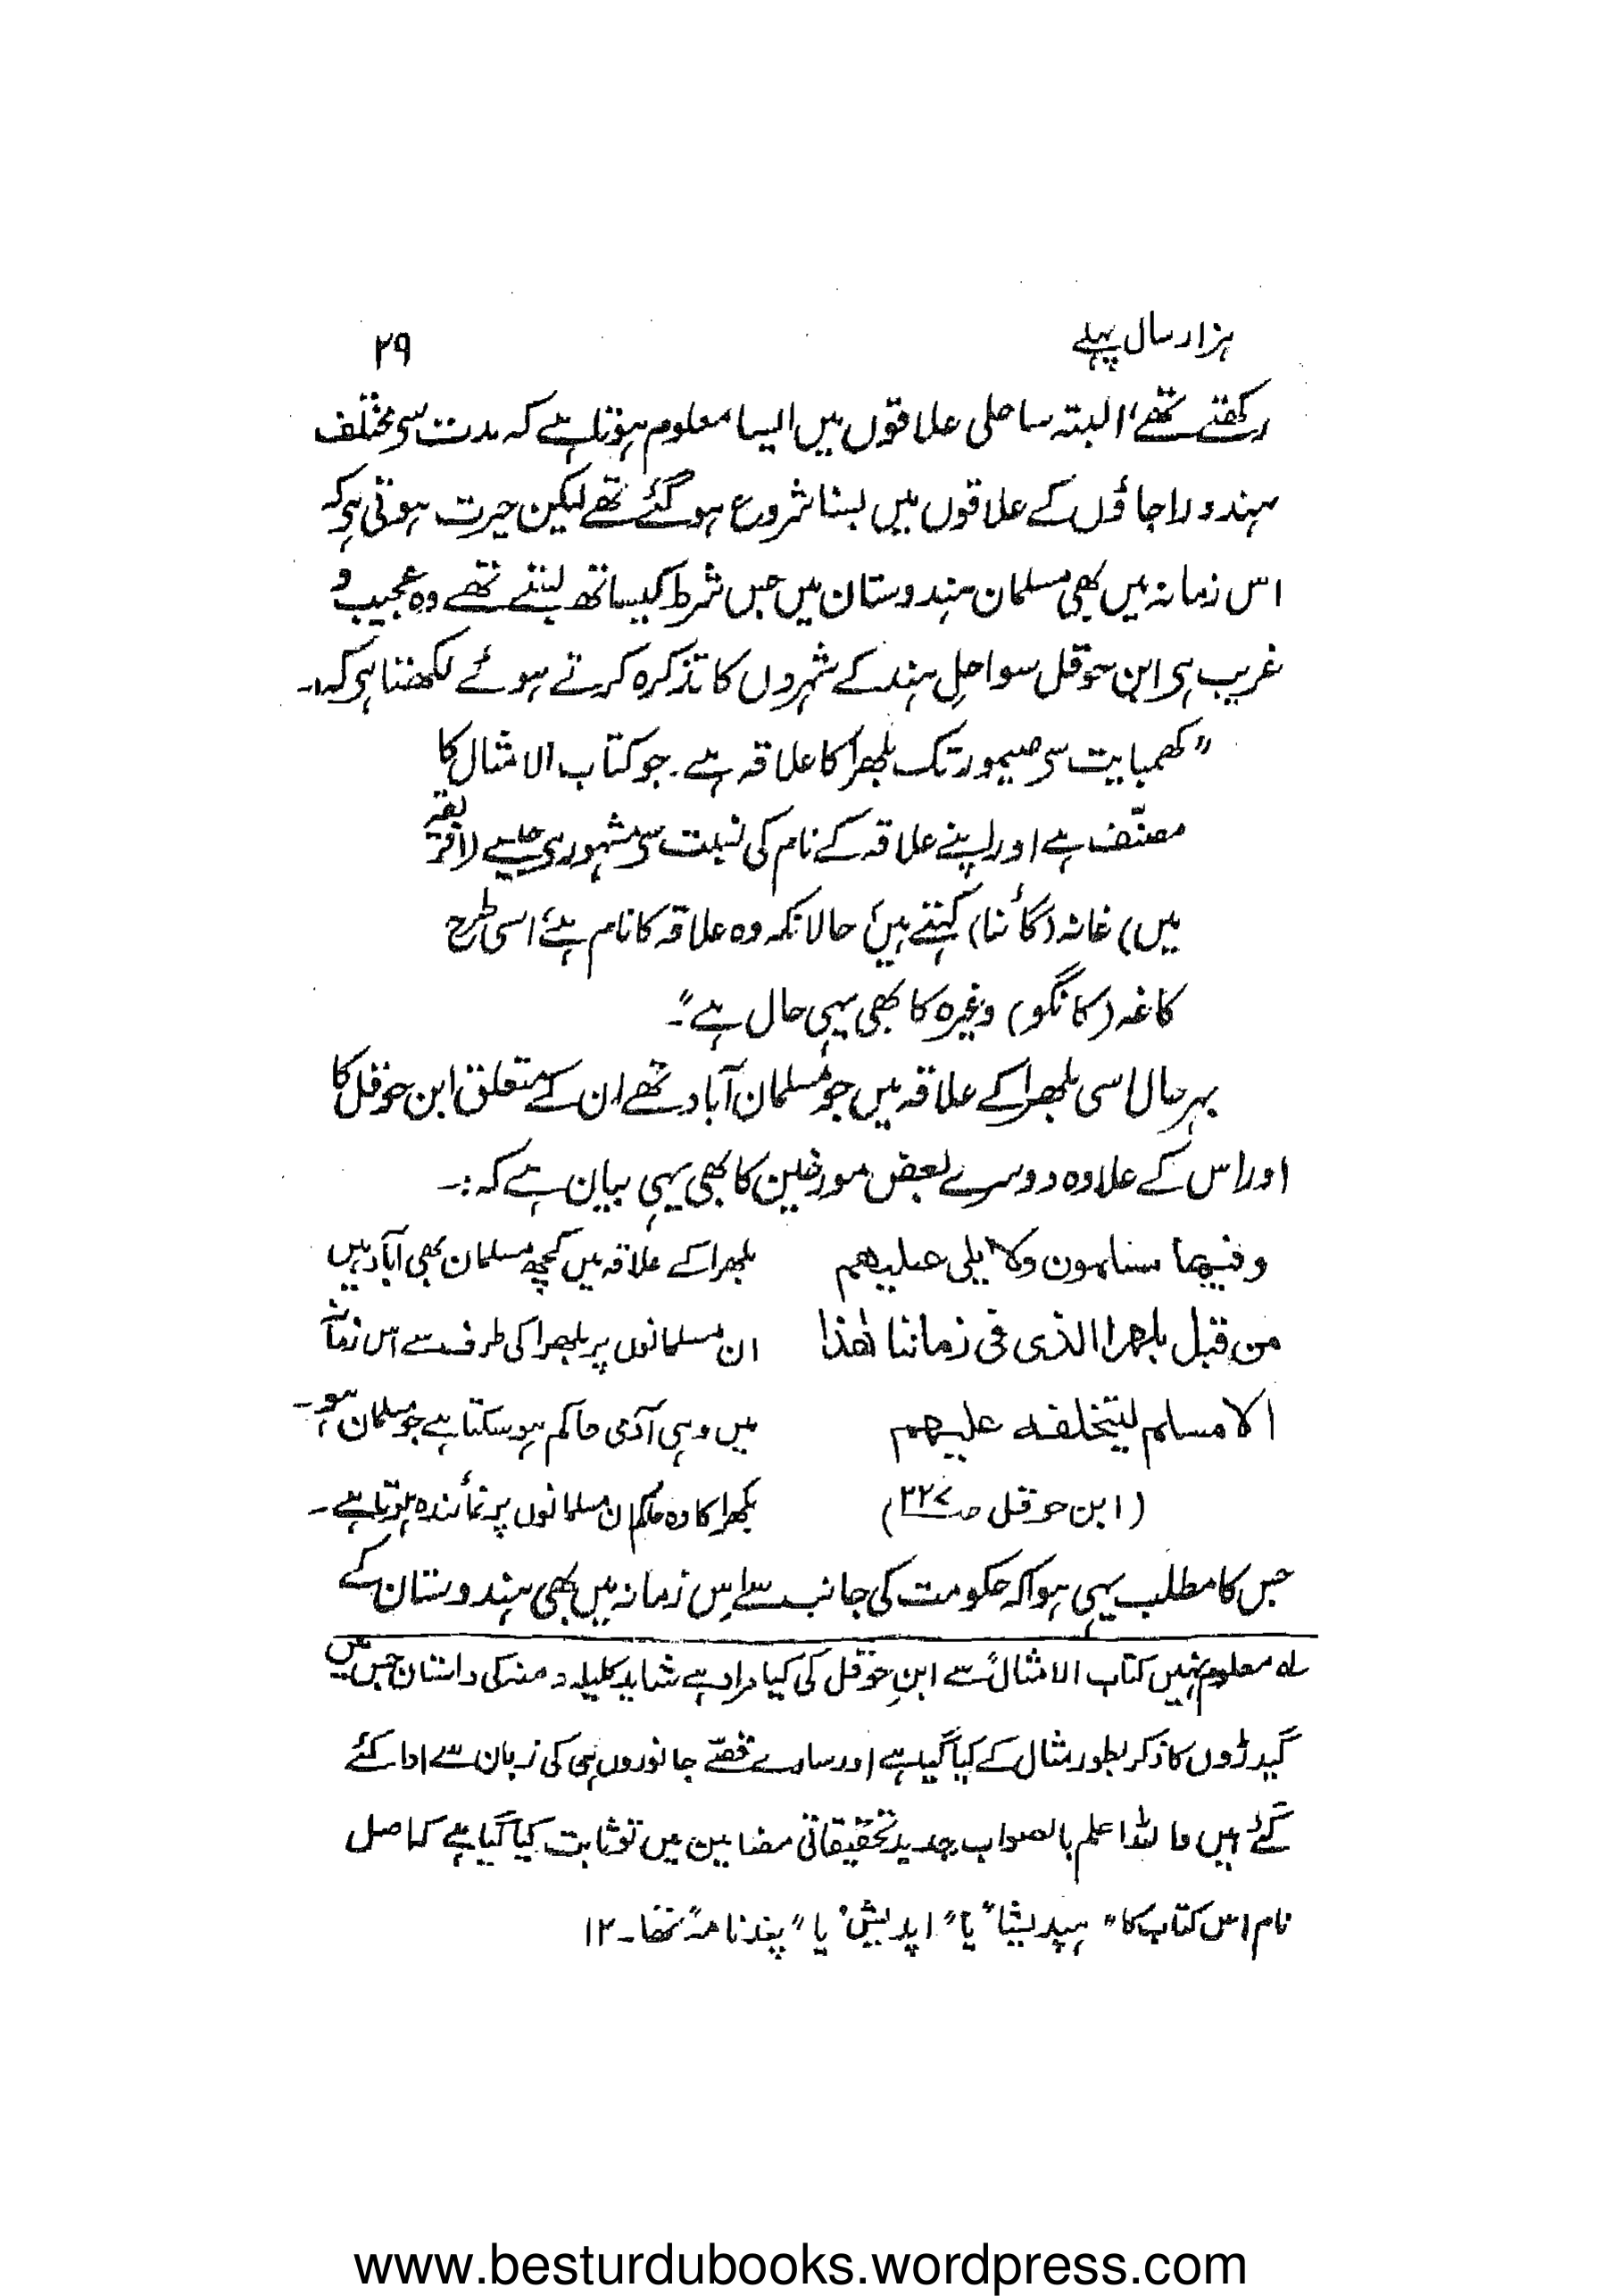 ہزار سال پہلے
۲۹
رکھتے تھے، البتہ ساحلی علاقوں میں ایسا معلوم ہوتا ہے کہ مدت سی مختلف
ہندو راجاؤں کے علاقوں میں بسنا شروع ہو گئے تھے لیکن حیرت ہوتی ہی کہ
اس زمانہ میں بھی مسلمان ہندوستان میں جس شرط کیساتھ بستے تھے وہ عجیب و
غریب ہی ابن حوقل سواحلِ ہند کے شہروں کا تذکرہ کرتے ہوئے لکھتا ہی کہ :۔
"کھمبایت سی صیمور تک بلھرا کا علاقہ ہے۔ جو کتاب الامثال کا
مصنّف ہے اور اپنے علاقہ کے نام کی نسبت سی مشہور ہی جیسے (افریقہ
میں) غانہ (گائنا) کہتے ہیں حالانکہ وہ علاقہ کا نام ہے، اسی طرح
کاغہ (کانگو) وغیرہ کا بھی یہی حال ہے"۔
بہرحال اسی بلھرا کے علاقہ میں جو مسلمان آباد تھے ان کے متعلق ابن حوقل کا
اور اس کے علاوہ دوسرے بعض مورخین کا بھی یہی بیان ہے کہ :۔
وفیھا مسلمون ولا یلی علیھم
من قبل بلھرا الذی فی زماننا ھٰذا
الا مسلم یتخلفہ علیھم
(ابن حوقل صـ ۳۲۷)
بلھرا کے علاقہ میں کچھ مسلمان بھی آباد ہیں
ان مسلمانوں پر بلھرا کی طرف سے اس زمانے
میں وہی آدمی حاکم ہو سکتا ہے جو مسلمان ہو۔
بلھرا کا وہ حاکم ان مسلمانوں پر نمائندہ ہوتا ہے۔
جس کا مطلب یہی ہوا کہ حکومت کی جانب سے اس زمانہ میں بھی ہندوستان کے
لہ معلوم نہیں کتاب الامثال سے ابن حوقل کی کیا مراد ہے شاید کلیلہ دمنہ کی داستان جس میں
گیدڑوں کا ذکر بطور مثال کے کیا گیا ہے اور سارے قصّے جانوروں ہی کی زبان سے ادا کئے
گئے ہیں واللہ اعلم بالصواب جدید تحقیقاتی مضامین میں تو ثابت کیا گیا ہے کہ اصل
نام اس کتاب کا "ہپدیشا" یا "اپدیش" یا "پندنامہ" تھا۔ ۱۲
www.besturdubooks.wordpress.com